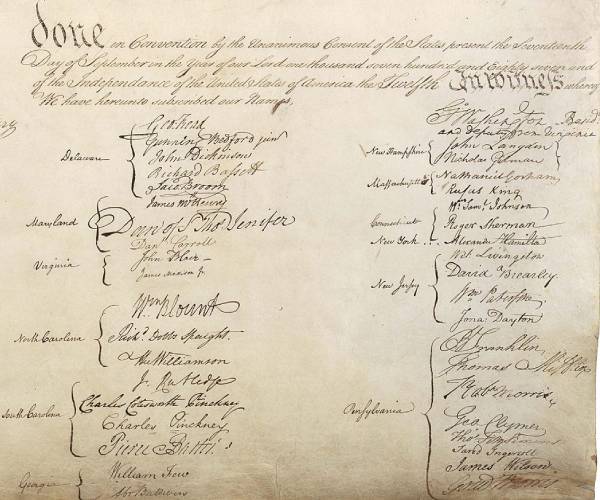 done in Convention by the Unanimous Consent of the States present the Seventeenth
Day of September in the Year of our Lord one thousand seven hundred and Eighty seven and
of the Independance of the United States of America the Twelfth In Witness whereof
We have hereunto subscribed our Names,
Delaware
Geo: Read
Gunning Bedford jun
John Dickinson
Richard Bassett
Jaco: Broom
Maryland
James McHenry
Dan of St Thos. Jenifer
Danl Carroll
Virginia
John Blair
James Madison Jr
North Carolina
Wm Blount
Richd. Dobbs Spaight.
Hu Williamson
South Carolina
J. Rutledge
Charles Cotesworth Pinckney
Charles Pinckney
Pierce Butler
Georgia
William Few
Abr Baldwin
Go. Washington Presidt
and deputy from Virginia
New Hampshire
John Langdon
Nicholas Gilman
Massachusetts
Nathaniel Gorham
Rufus King
Connecticut
Wm. Saml. Johnson
Roger Sherman
New York
Alexander Hamilton
New Jersey
Wil: Livingston
David Brearley.
Wm Paterson
Jona: Dayton
Pensylvania
B Franklin
Thomas Mifflin
Robt Morris
Geo. Clymer
Thos. FitzSimons
Jared Ingersoll
James Wilson
Gouv Morris